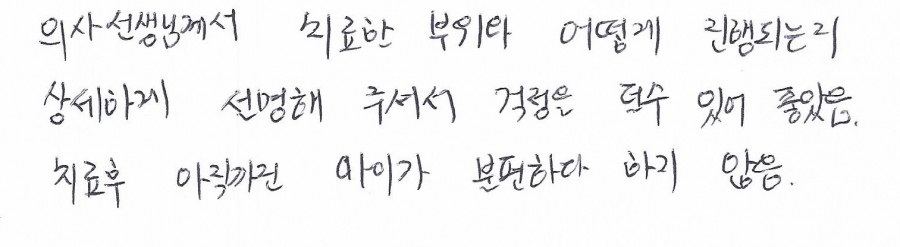 의사선생님께서 치료한 부위와 어떻게 진행되는지
상세하게 설명해 주셔서 걱정은 덜수 있어 좋았음.
치료후 아직까진 아이가 불편하다 하지 않음.